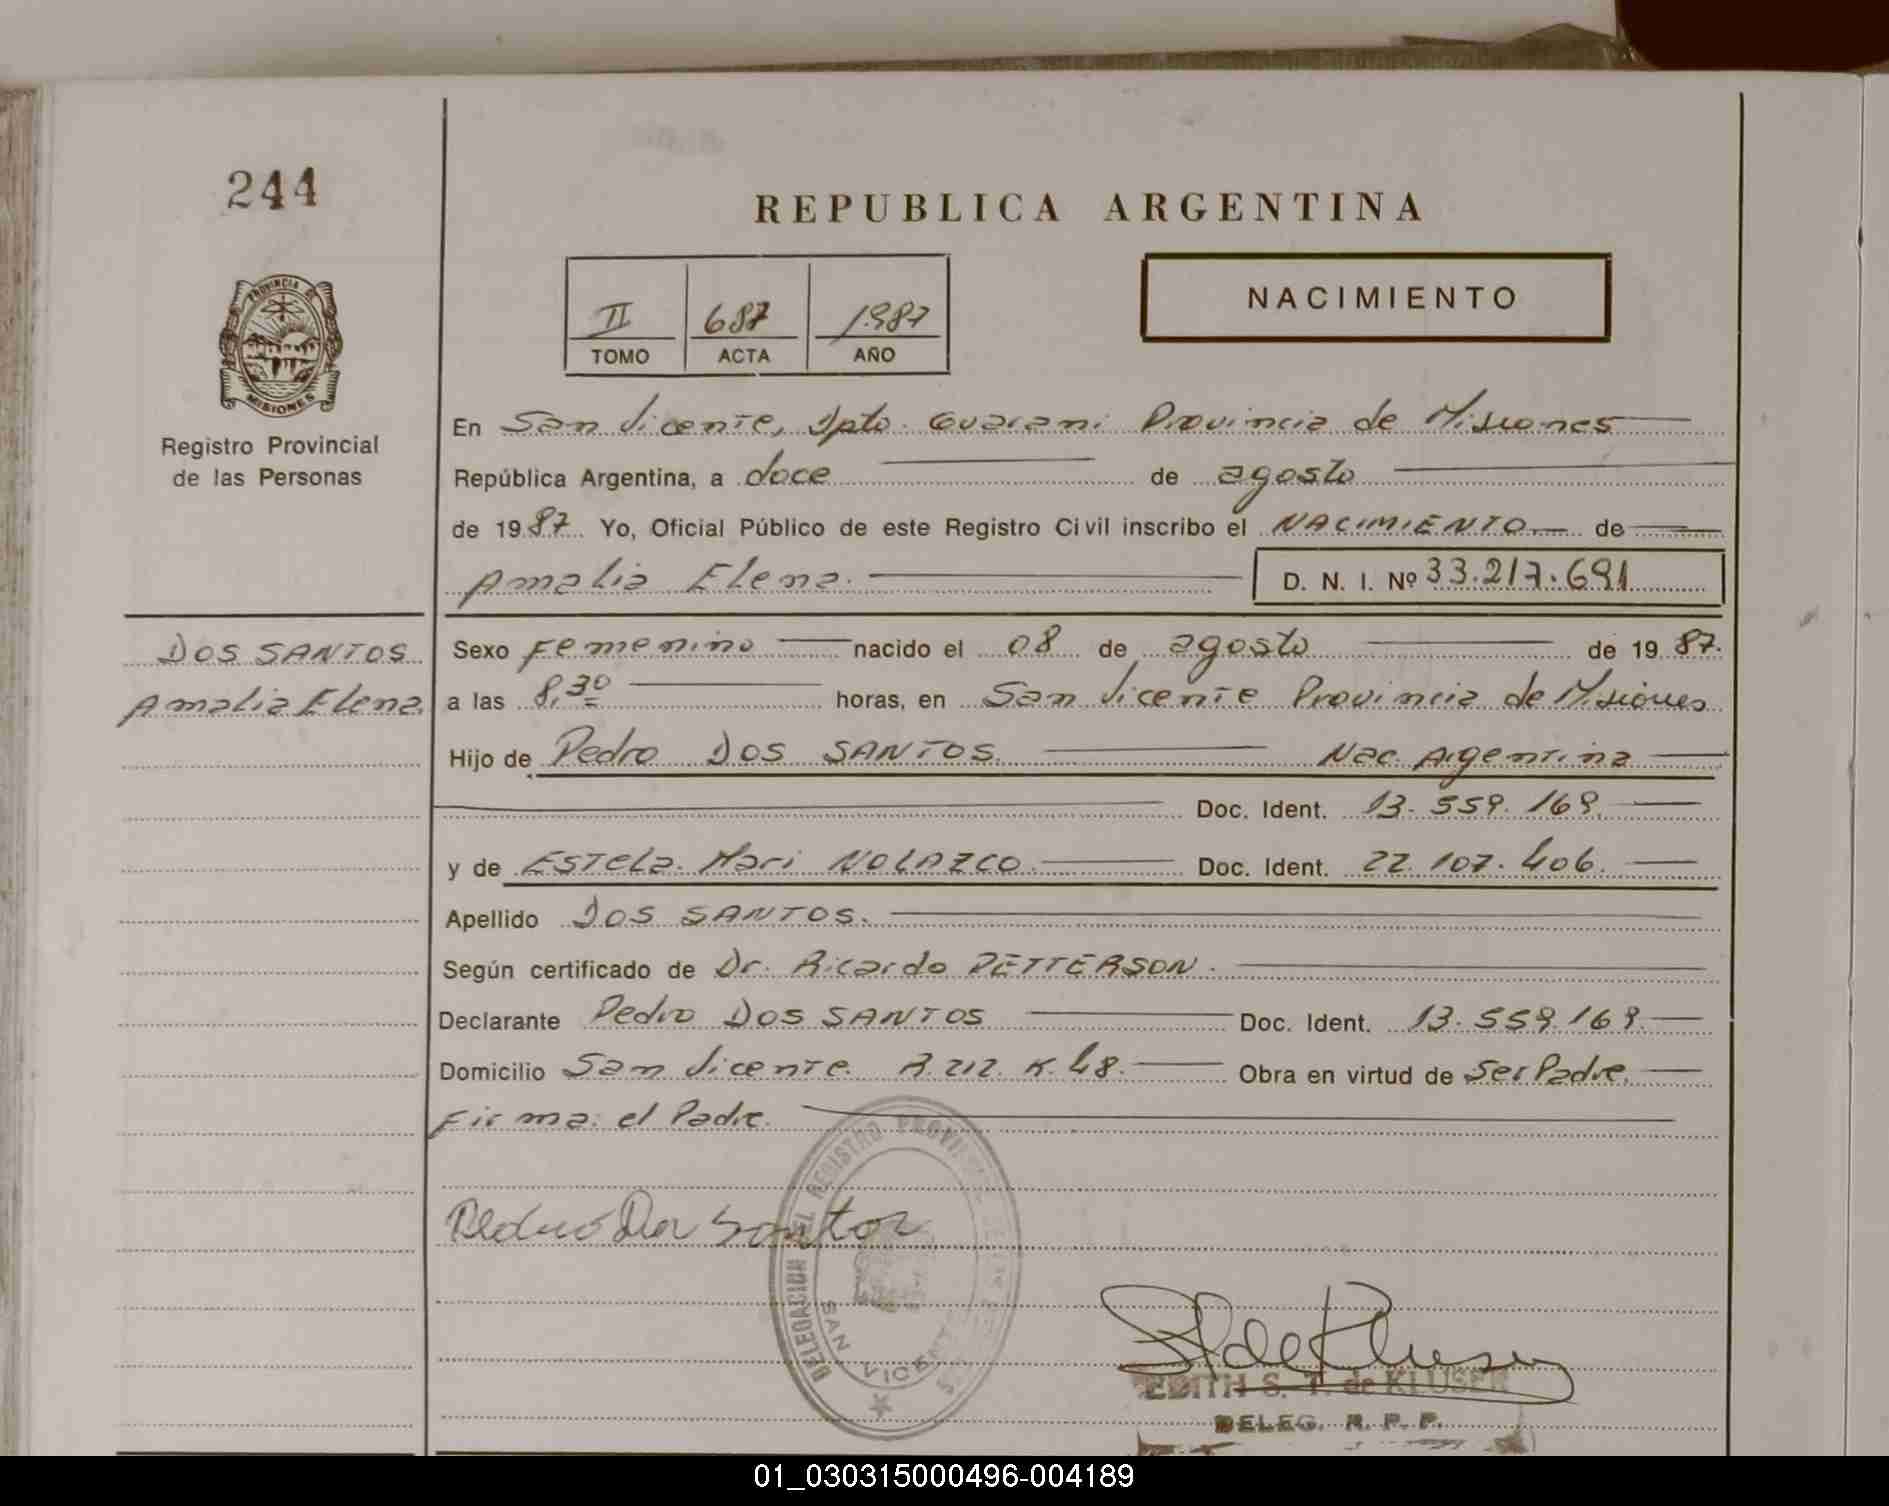 244
REPUBLICA ARGENTINA
PROVINCIA DE
MISIONES
Registro Provincial
de las Personas
II 687 1987
TOMO ACTA AÑO
NACIMIENTO
En San Vicente, Dpto. Guarani Provincia de Misiones
República Argentina, a doce de agosto
de 1987 Yo, Oficial Público de este Registro Civil inscribo el NACIMIENTO de
Amalia Elena. D. N. I. Nº 33.217.691
DOS SANTOS
Amalia Elena.
Sexo Femenino nacido el 08 de agosto de 1987.
a las 8,30 horas, en San Vicente Provincia de Misiones
Hijo de Pedro DOS SANTOS. Nac. Argentina
Doc. Ident. 13.559.169.
y de ESTELA Mari NOLAZCO. Doc. Ident. 22.107.406.
Apellido DOS SANTOS.
Según certificado de Dr. Ricardo PETTERSON.
Declarante Pedro DOS SANTOS Doc. Ident. 13.559.169.
Domicilio San Vicente R.212. K.48. Obra en virtud de Ser Padre.
Firma: el Padre.
Pedro Dos Santos
DELEGACION DEL REGISTRO PROVINCIAL DE LAS PERSONAS
SAN VICENTE
EDITH S. T. de KLUSER
DELEG. R. P. P.
01_030315000496-004189